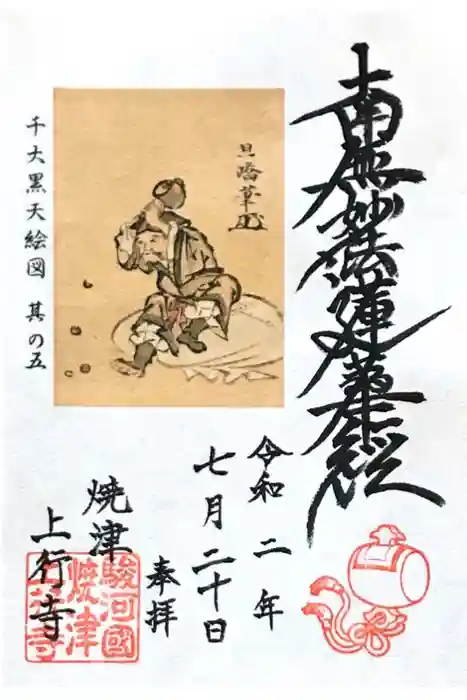 南無妙法蓮華経
令和二年
七月二十日
奉拝
千大黒天絵図 其の五
焼津
上行寺
駿河國
焼津
上行寺